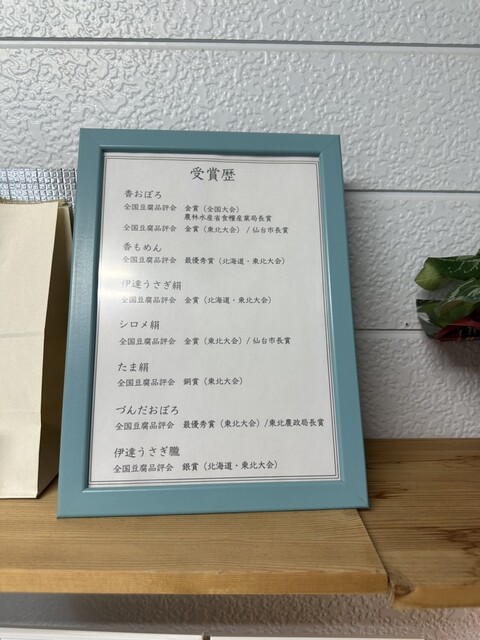 受賞歴
香おぼろ
全国豆腐品評会 金賞（全国大会）
農林水産省食糧産業局長賞
全国豆腐品評会 金賞（東北大会）/仙台市長賞
香もめん
全国豆腐品評会 最優秀賞（北海道・東北大会）
伊達うさぎ絹
全国豆腐品評会 金賞（北海道・東北大会）
シロメ絹
全国豆腐品評会 金賞（東北大会）/仙台市長賞
たま絹
全国豆腐品評会 銅賞（東北大会）
づんだおぼろ
全国豆腐品評会 最優秀賞（東北大会）/東北農政局長賞
伊達うさぎ朧
全国豆腐品評会 銀賞（北海道・東北大会）